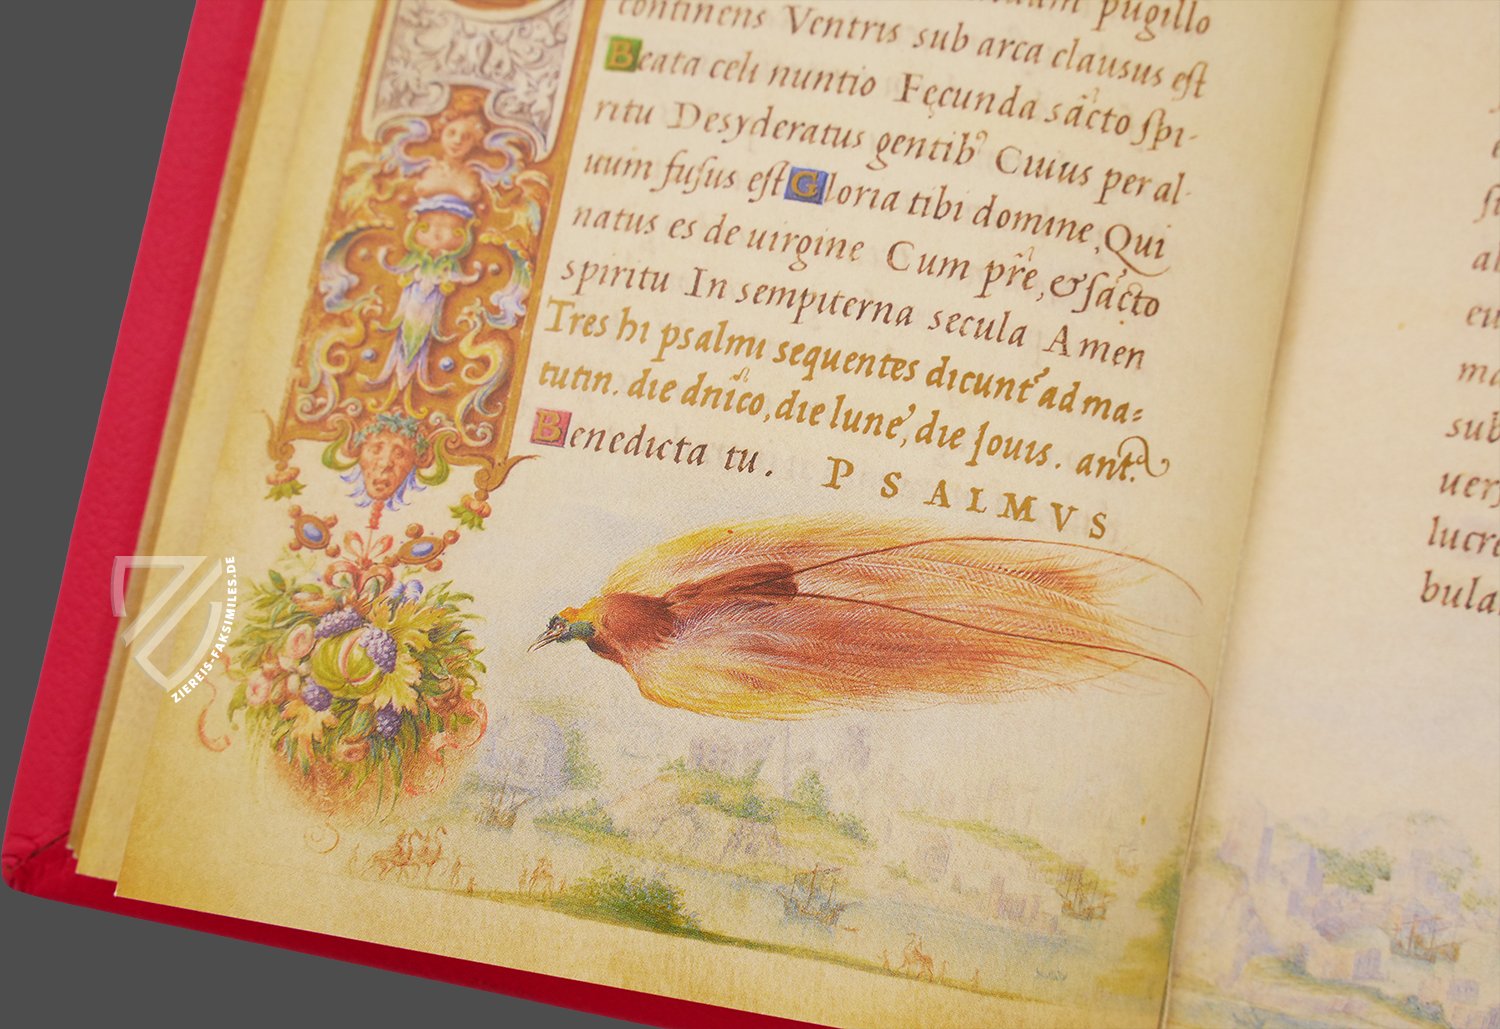 pugillo
continens Ventris sub arca clausus est
Beata celi nuntio Fęcunda sācto spi-
ritu Desyderatus gentib⁹ Cuius per al-
uum fusus est Gloria tibi domine, Qui
natus es de uirgine Cum pr̄e, & sācto
spiritu In sempiterna secula Amen
Tres hi psalmi sequentes dicunt᷑ ad ma=
tutin. die dn̄ico, die lune, die Iouis. ant.
Benedicta tu. PSALMVS
al
eu
ma
sub
uer
lucr
bula
ZIEREIS-FAKSIMILES.DE